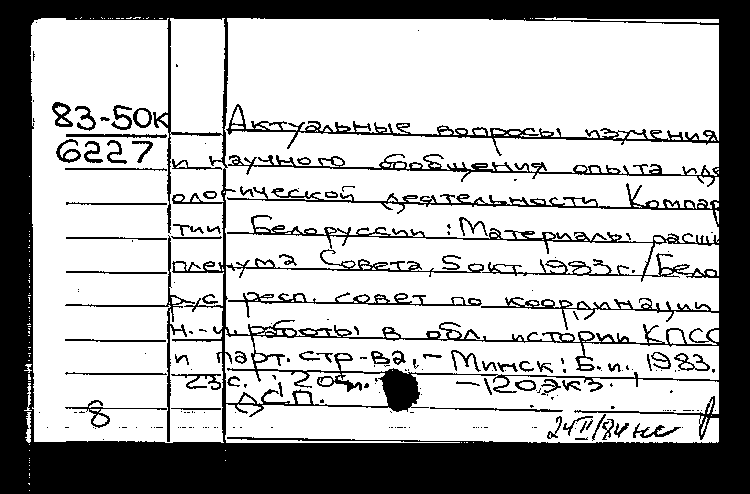 83-50к Актуальные вопросы изучения
6227 и научного обобщения опыта иде
ологической деятельности Компар
тии Белоруссии : Материалы расши
пленума Совета, 5 окт. 1983 г. / Бело
рус. респ. совет по координации
н.-и. работы в обл. истории КПСС
и парт. стр-ва. – Минск : Б. и., 1983.
23 с. ; 20 см. – 120 экз.
ДСП.
8 24 II/84 нс